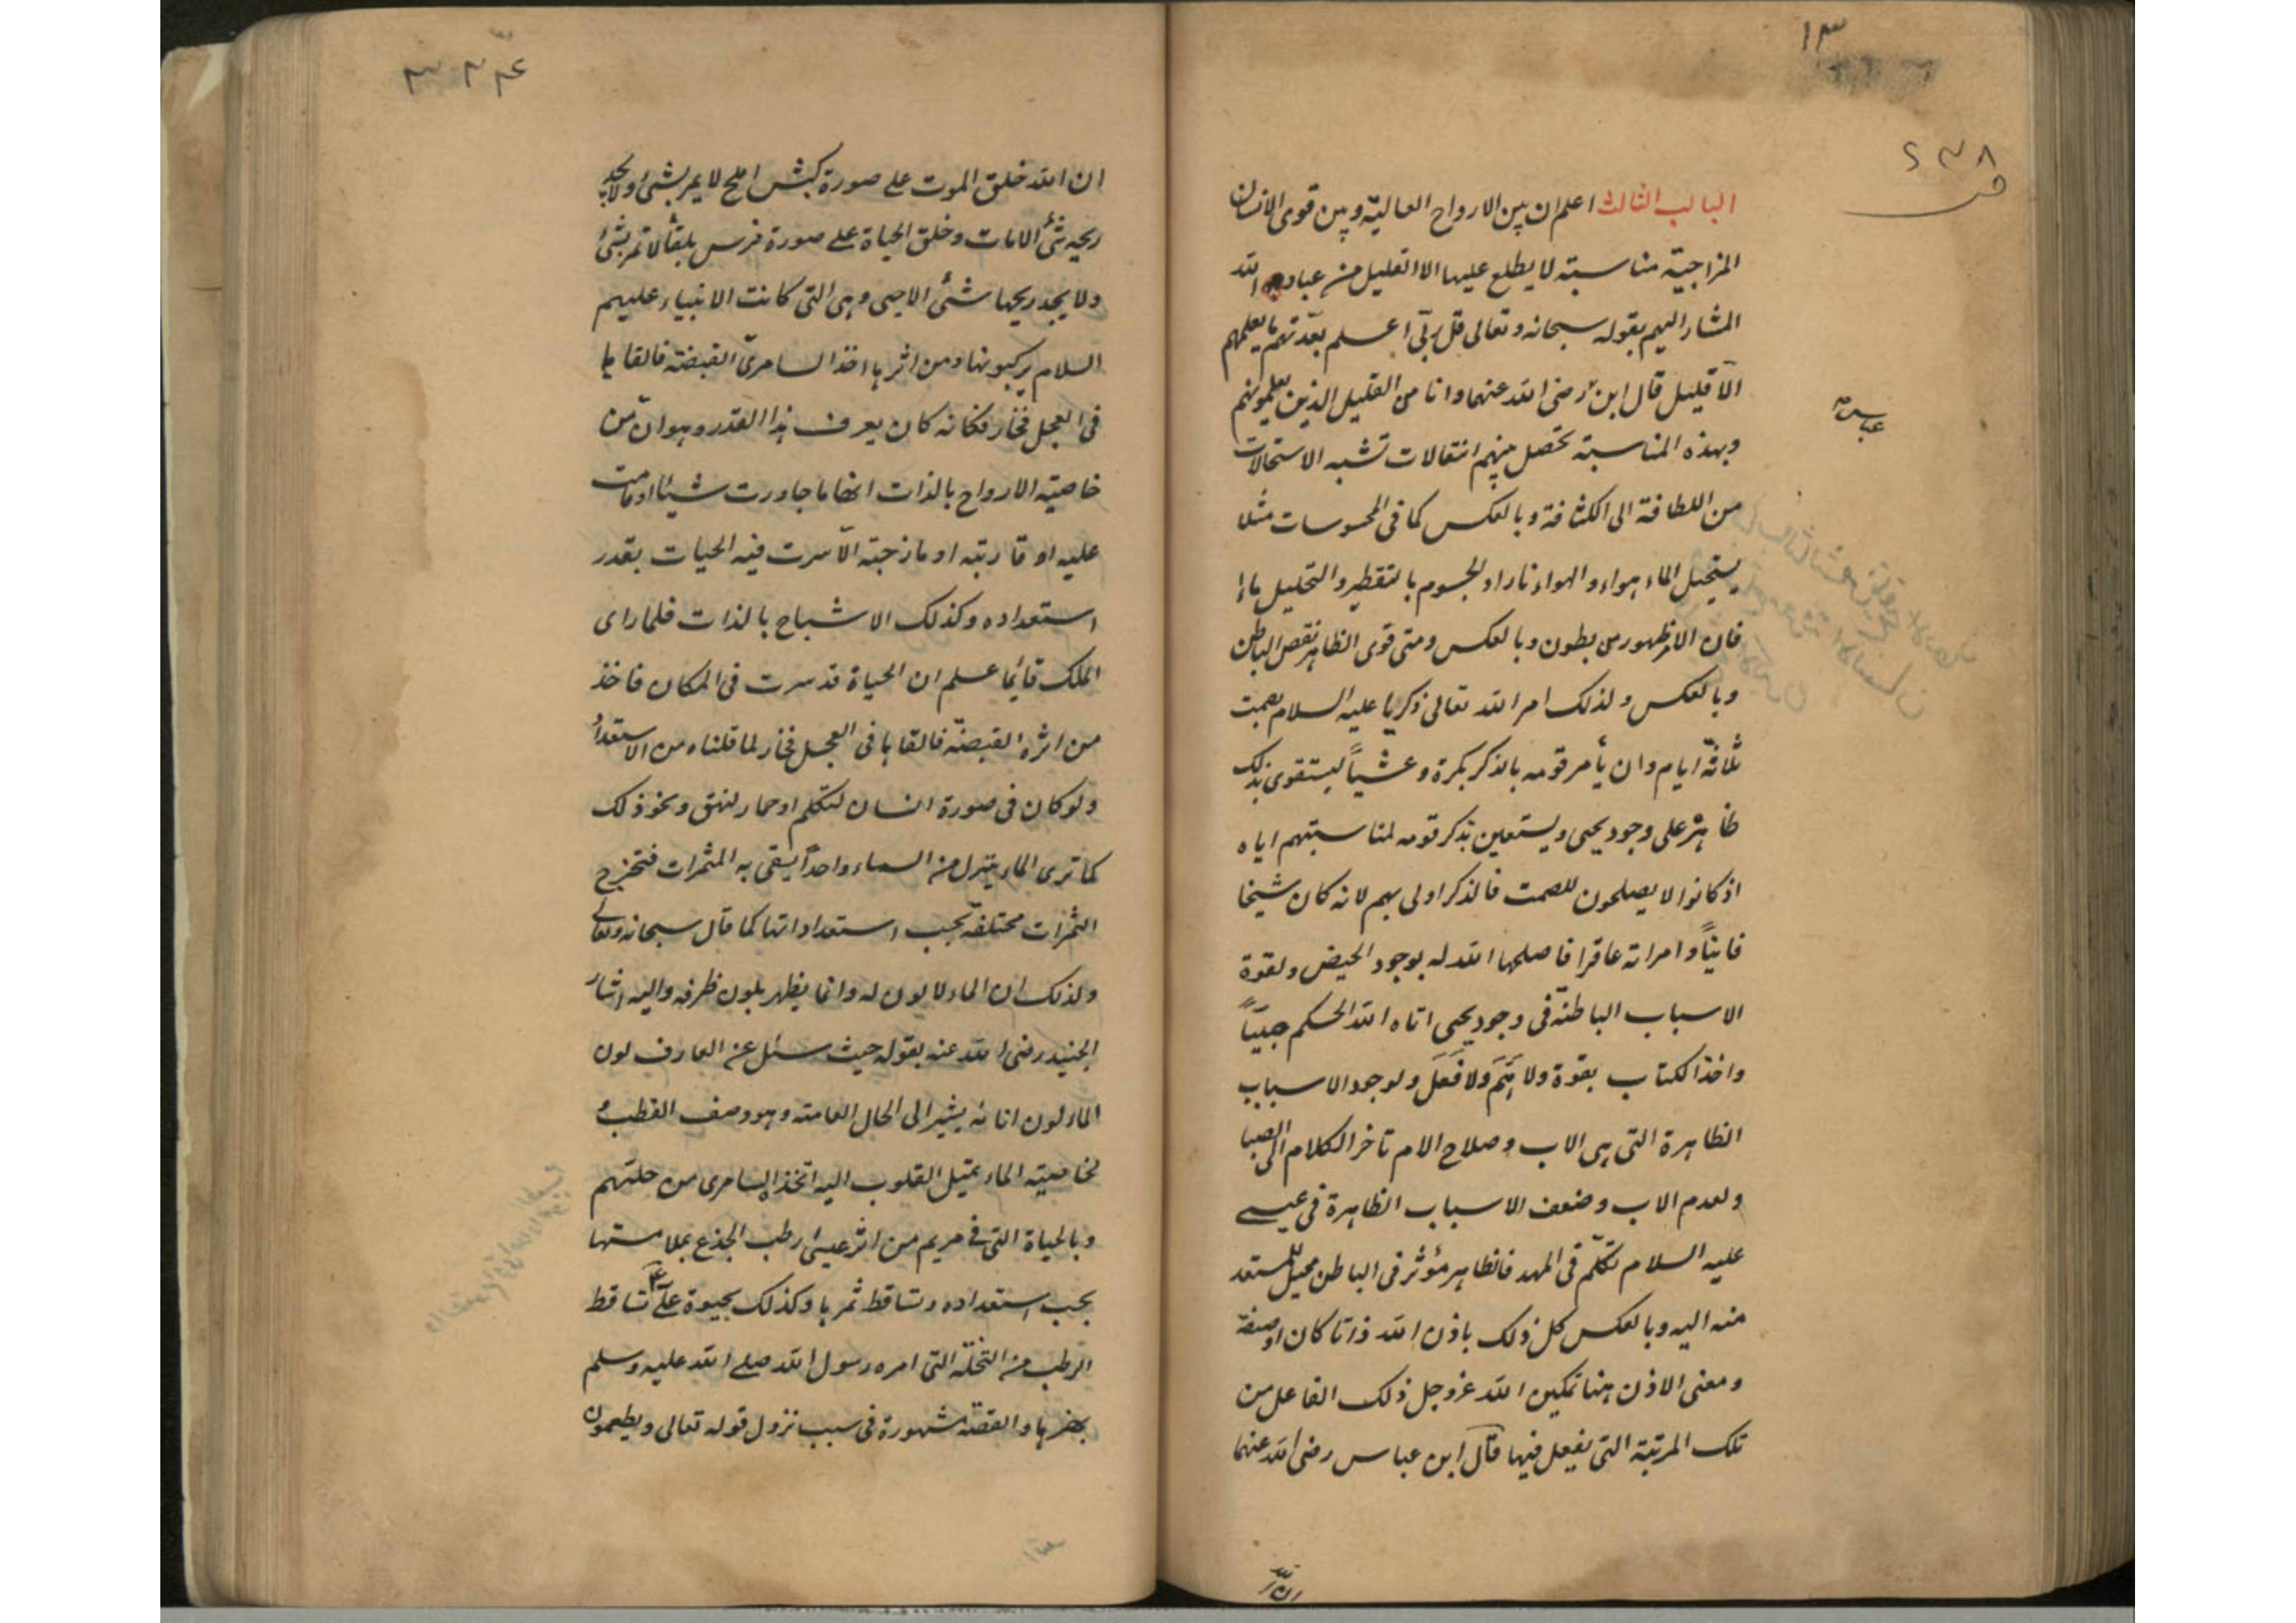 ١٣
٢٣٨
الباب الثالث اعلم ان بين الارواح العالية وبين قوى الانسان
المزاجية مناسبة لا يطلع عليها الا القليل من عباد الله
المشار اليهم بقوله سبحانه وتعالى قل ربى اعلم بعدتهم ما يعلمهم
الا قليل قال ابن رضى الله عنهما وانا من القليل الذين يعلمونهم
عباس
وبهذه المناسبة تحصل بينهم انتقالات تشبه الاستحالات
من اللطافة الى الكثافة وبالعكس كما فى المحسوسات مثلا
يستحيل الماء هواء والهواء نارا والجسوم بالتقطير والتحليل ماء
فان الامر ظهور من بطون وبالعكس ومتى قوى الظاهر نقص الباطن
وبالعكس ولذلك امر الله تعالى ذكريا عليه السلام بصمت
ثلاثة ايام وان يأمر قومه بالذكر بكرة وعشياً ليستقوى بذلك
ظاهره على وجود يحيى ويستعين بذكر قومه لمناسبتهم اياه
اذ كانوا لا يصلحون للصمت فالذكر اولى بهم لانه كان شيخا
فانياً وامراته عاقرا فاصلحها الله له بوجود الحيض ولقوة
الاسباب الباطنة فى وجود يحيى اتاه الله الحكم صبياً
واخذ الكتاب بقوة ولا هَمَّ ولا فَعَل ولوجود الاسباب
الظاهرة التى هى الاب وصلاح الام تاخر الكلام الى الصبا
ولعدم الاب وضعف الاسباب الظاهرة فى عيسى
عليه السلام تكلّم فى المهد فالظاهر مؤثر فى الباطن محيل للمستعد
منه اليه وبالعكس كل ذلك باذن الله ذاتا كان او صفة
ومعنى الاذن هنا تمكين الله عز وجل ذلك الفاعل من
تلك المرتبة التى يفعل فيها قال ابن عباس رضى الله عنهما
ان الله
ان الله خلق الموت على صورة كبش املح لا يمر بشئ ولا يجد
ريحه شئ الا مات وخلق الحياة على صورة فرس بلقا لا تمر بشئ
ولا يجد ريحها شئ الا حيى وهى التى كانت الانبياء عليهم
السلام يركبونها ومن اثرها اخذ السامرىّ القبضة فالقاها
فى العجل فخار فكانه كان يعرف هذا القدر وهو ان من
خاصية الارواح بالذات انها ما جاورت شيئا او مرت
عليه او قاربته او مازجته الا سرت فيه الحيات بقدر
استعداده وكذلك الاشباح بالذات فلما راى
الملك قائما علم ان الحياة قد سرت فى المكان فاخذ
من اثره القبضة فالقاها فى العجل فخار لما قلناه من الاستعداد
ولو كان فى صورة انسان لتكلم او حمار لنهق ونحو ذلك
كما ترى الماء ينزل من السماء واحداً يسقى به المثمرات فتخرج
الثمرات مختلفة بحسب استعداداتها كما قال سبحانه وتعالى
ولذلك ان الماء لا لون له وانما يظهر بلون ظرفه واليه اشار
الجنيد رضى الله عنه بقوله حيث سئل عن العارف لون
الماء لون انائه يشير الى الحال العامة وهو وصف القطب و
لخاصية الماء بميل القلوب اليه اتخذ السامرى من حليهم
وبالحياة التى فى مريم من اثر عيسى رطب الجذع بملامستها
بحسب استعداده وتساقط ثمرها وكذلك بحيوة على تساقط
الرطب من النخلة التى امره رسول الله صلى الله عليه وسلم
بهزها والقصة مشهورة فى سبب نزول قوله تعالى ويطعمون